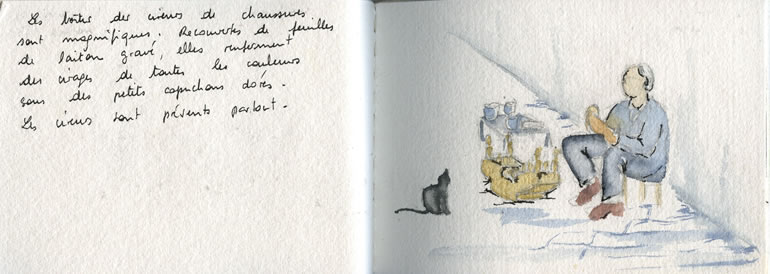 Les boîtes des cireurs de chaussures
sont magnifiques. Recouvertes de feuilles
de laiton gravé, elles renferment
des cirages de toutes les couleurs
sous des petits capuchons dorés.
Les cireurs sont présents partout.